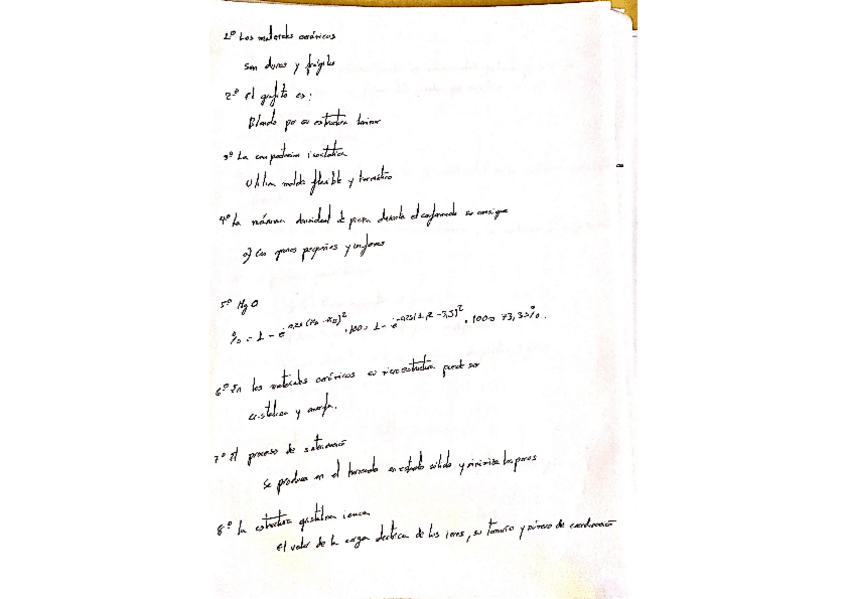 1º Los materiales cerámicos
Son duros y frágiles
2º El grafito es:
Blando por su estructura laminar
3º La compactación isostática
Utiliza molde flexible y hermético
4º La máxima densidad de pieza durante el conformado se consigue
a) Con granos pequeños y uniformes
5º MgO
% = 1 - e^0,25 (XA - XB)^2 . 100 = 1 - e^-0,25(1,2 - 3,5)^2 . 100 = 73,35%.
6º En los materiales cerámicos su microestructura puede ser
cristalina y amorfa.
7º El proceso de sinterización
Se produce en el horneado en estado sólido y minimiza los poros
8º La estructura cristalina iónica
el valor de la carga eléctrica de los iones, su tamaño y número de coordinación